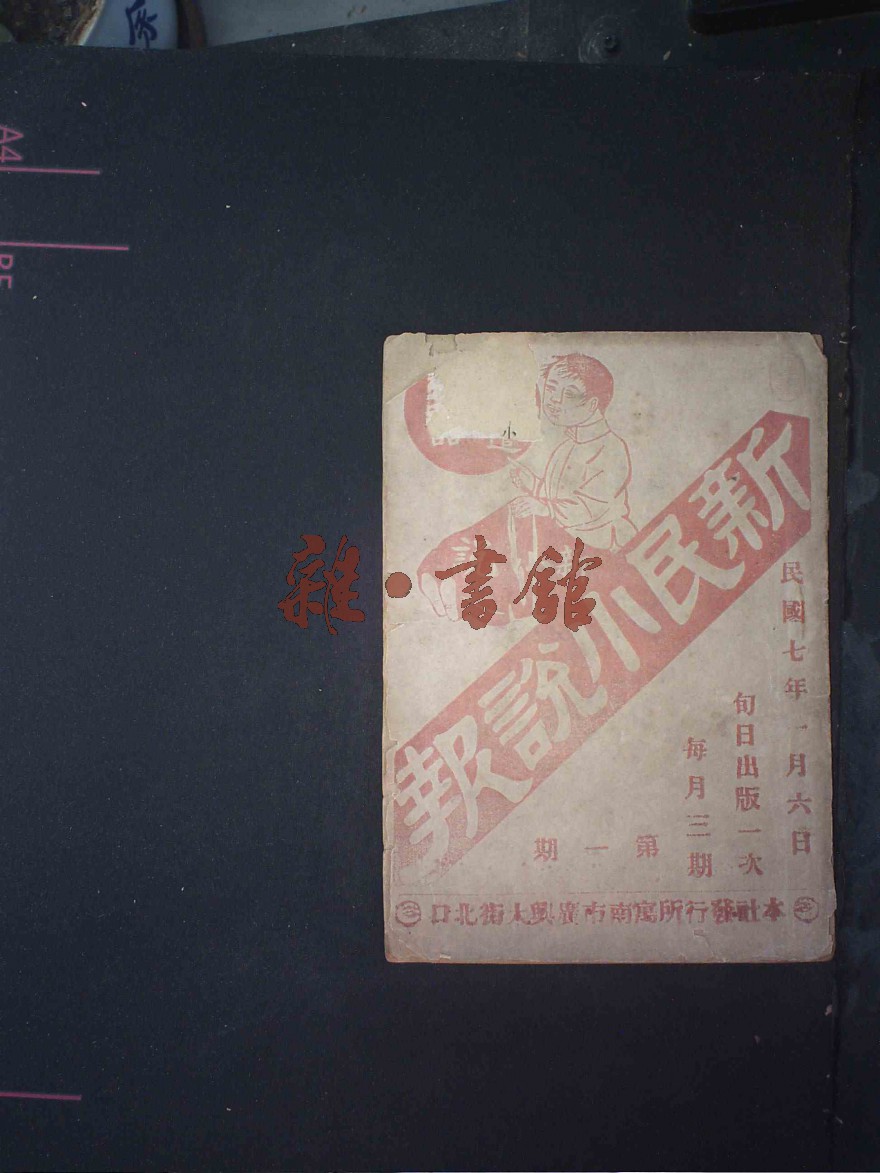 新民小說報
民國七年一月六日
旬日出版一次
每月三期
第一期
本社發行所寓南市廣興大街北口
雜·書館
小
A4